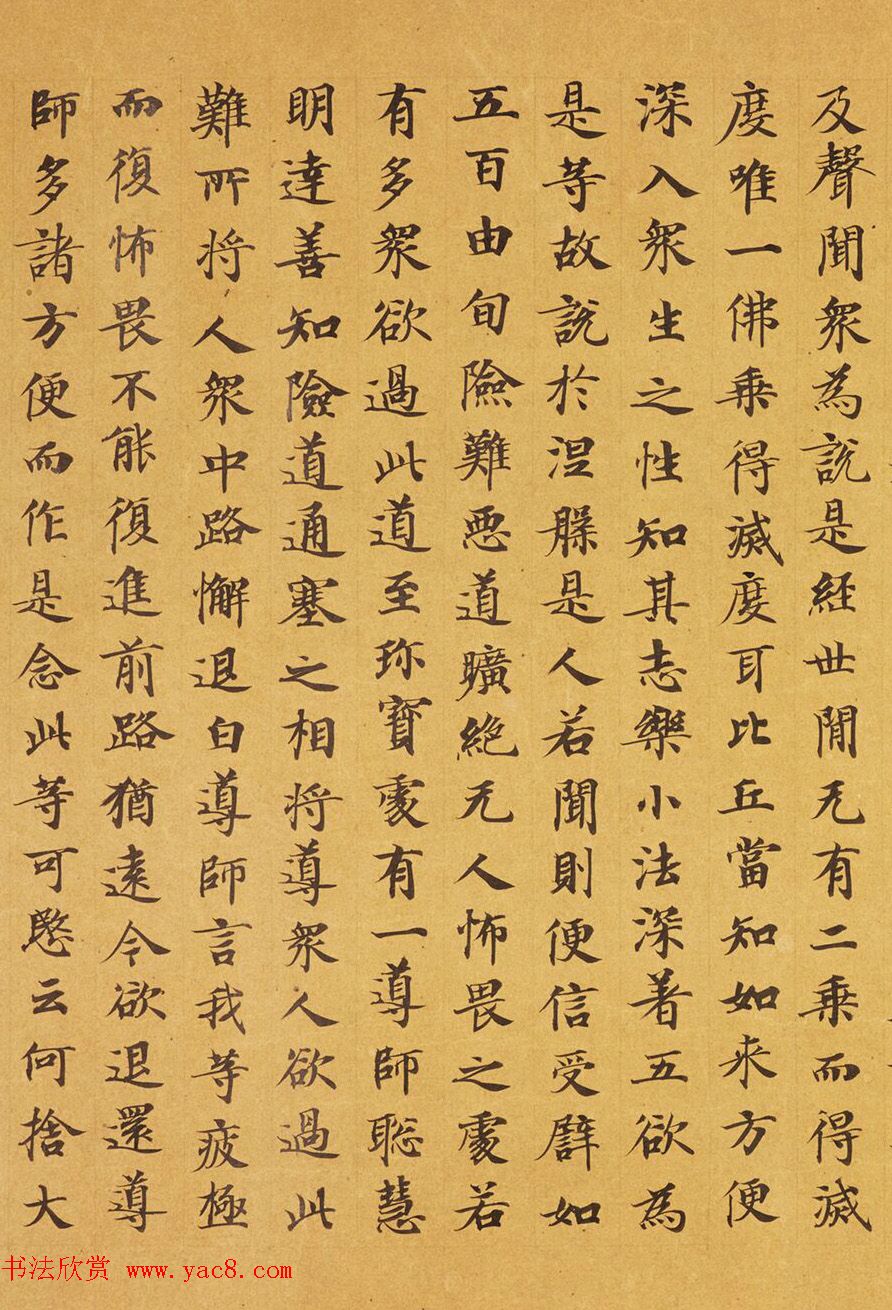 及聲聞衆為説是經世閒无有二乗而得滅
度唯一佛乗得滅度耳比丘當知如来方便
深入衆生之性知其志樂小法深著五欲為
是等故説於涅槃是人若聞則便信受譬如
五百由旬險難惡道曠絶无人怖畏之處若
有多衆欲過此道至珎寳處有一導師聡慧
明達善知險道通塞之相将導衆人欲過此
難所将人衆中路懈退白導師言我等疲極
而復怖畏不能復進前路猶逺今欲退還導
師多諸方便而作是念此等可愍云何捨大
书法欣赏 www.yac8.com